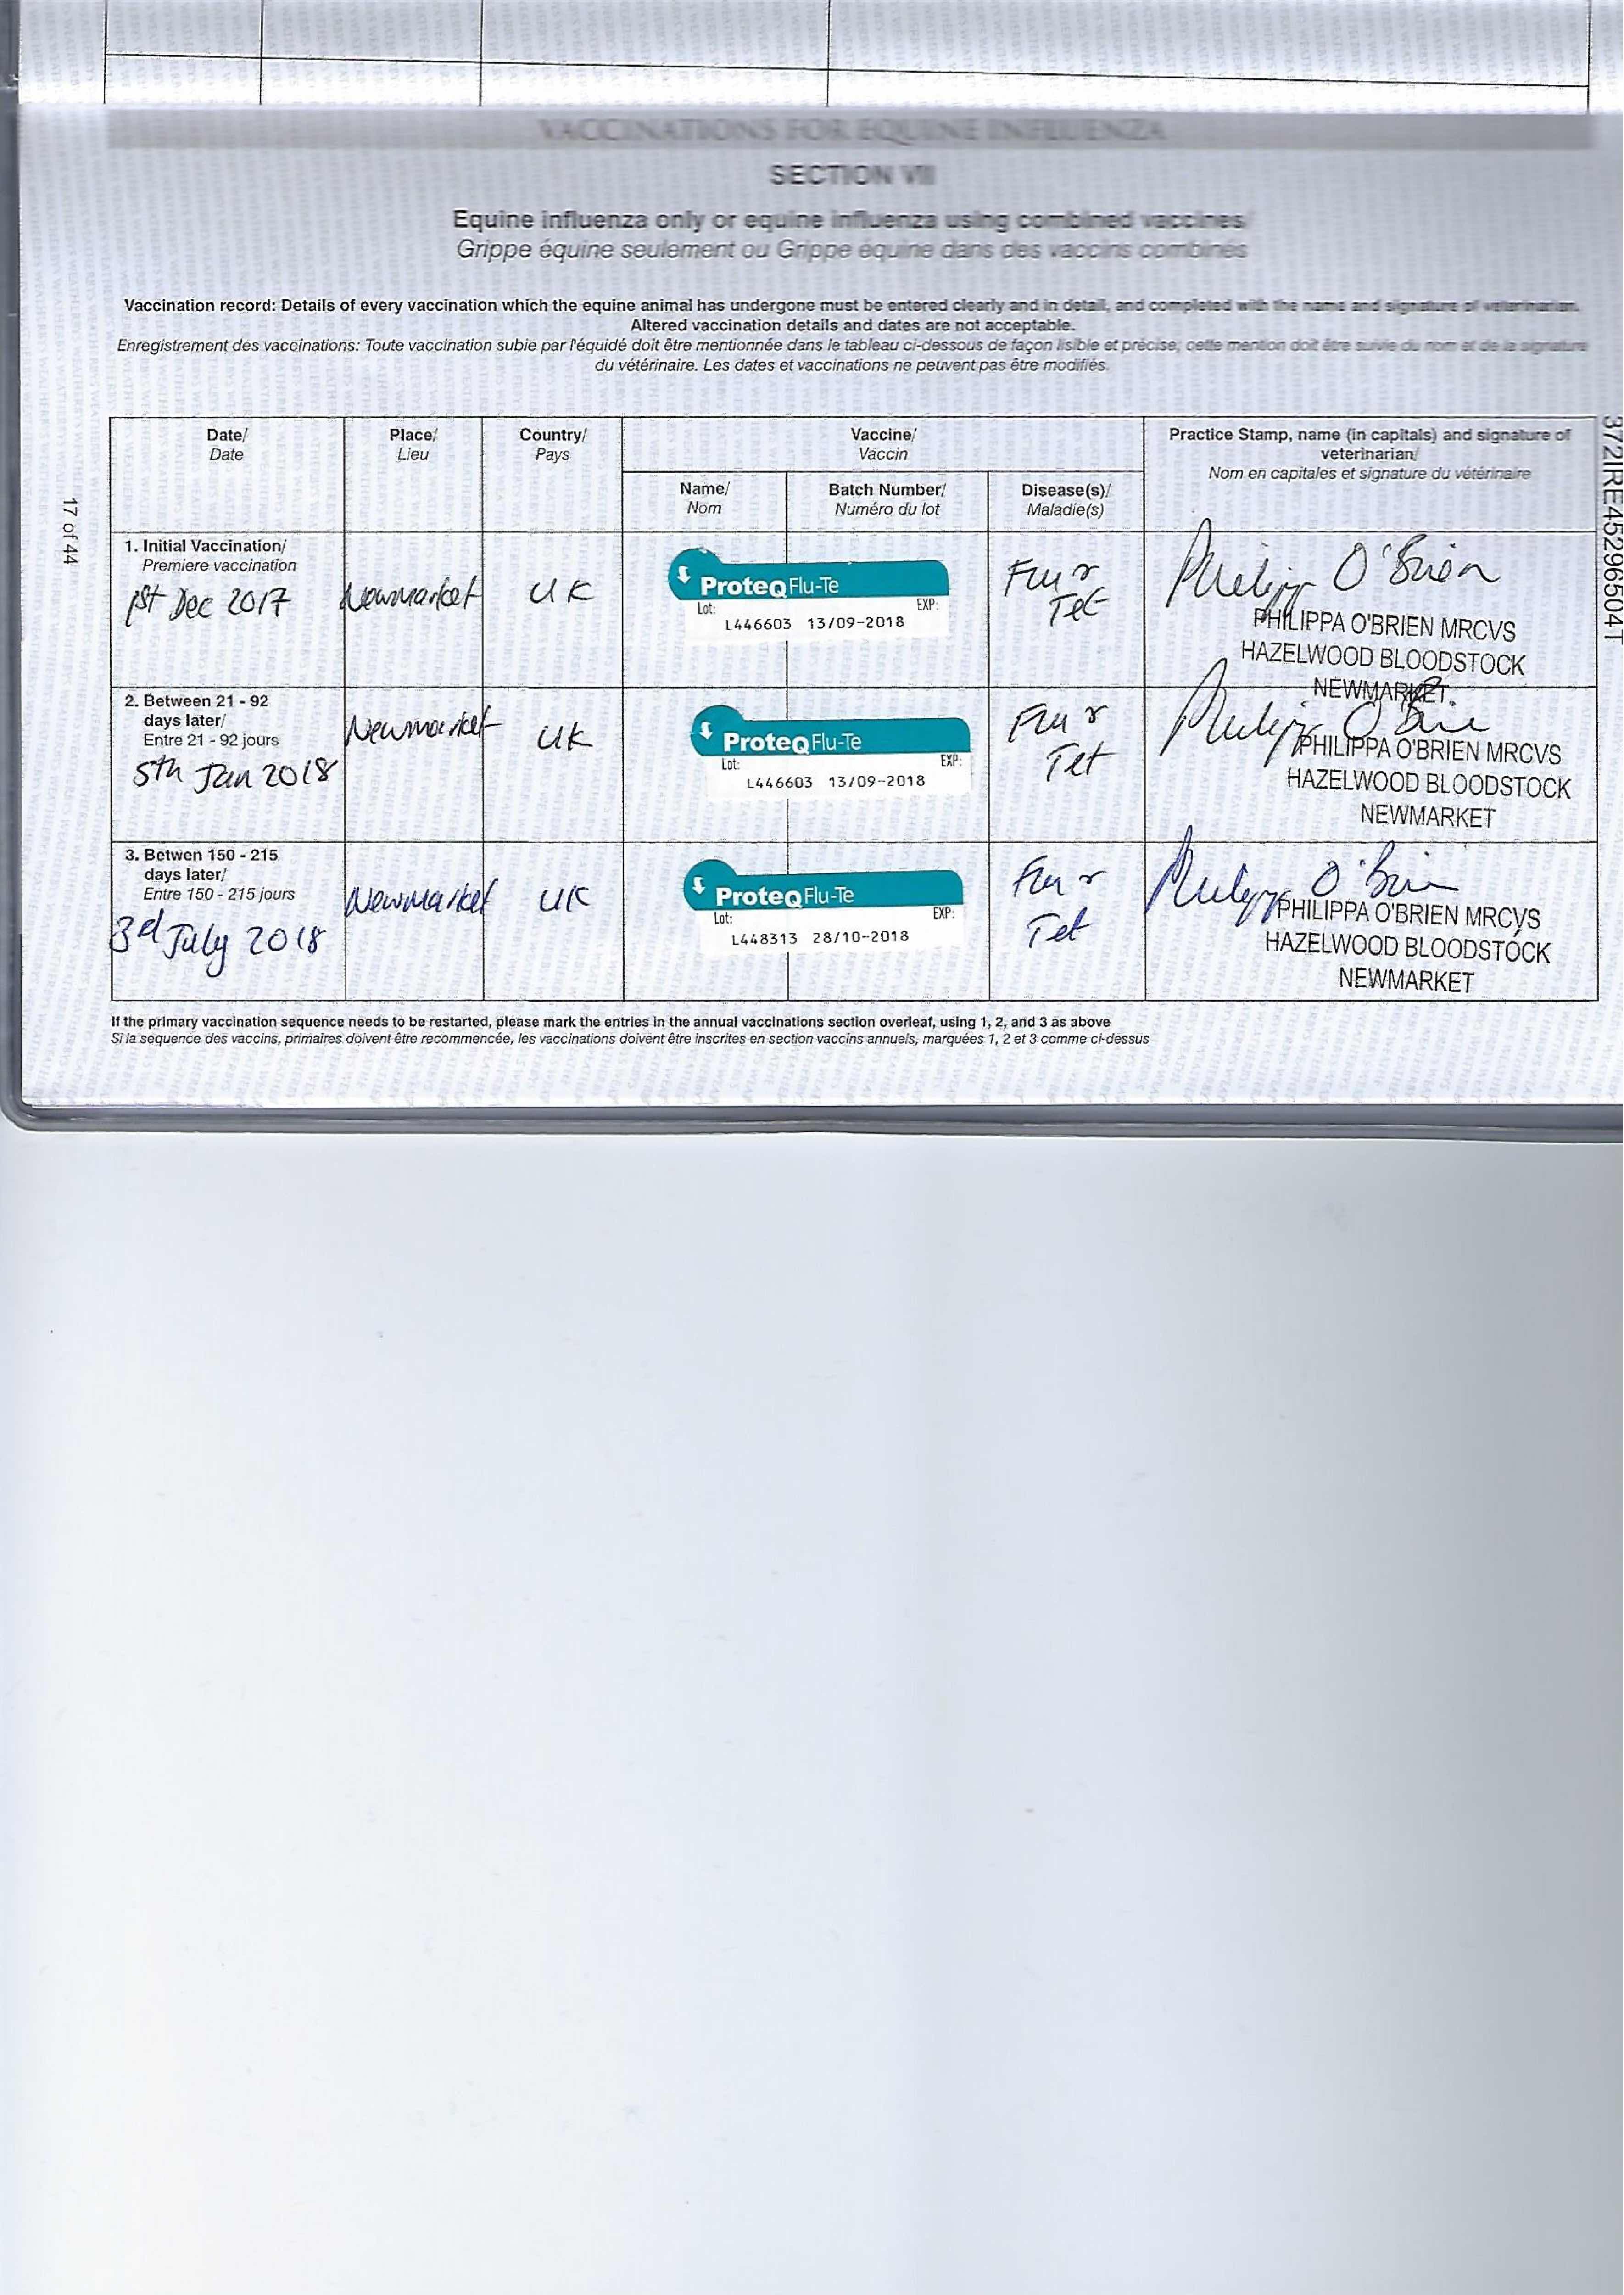 VACCINATIONS FOR EQUINE INFLUENZA
SECTION VII
Equine influenza only or equine influenza using combined vaccines/
Grippe équine seulement ou Grippe équine dans des vaccins combinés
Vaccination record: Details of every vaccination which the equine animal has undergone must be entered clearly and in detail, and completed with the name and signature of veterinarian.
Altered vaccination details and dates are not acceptable.
Enregistrement des vaccinations: Toute vaccination subie par l'équidé doit être mentionnée dans le tableau ci-dessous de façon lisible et précise, cette mention doit être suivie du nom et de la signature
du vétérinaire. Les dates et vaccinations ne peuvent pas être modifiés.
Date/
Date
Place/
Lieu
Country/
Pays
Vaccine/
Vaccin
Name/
Nom
Batch Number/
Numéro du lot
Disease(s)/
Maladie(s)
Practice Stamp, name (in capitals) and signature of
veterinarian/
Nom en capitales et signature du vétérinaire
1. Initial Vaccination/
Premiere vaccination
1st Dec 2017
Newmarket
UK
ProteqFlu-Te
Lot: EXP:
L446603 13/09-2018
Flu &
Tet
Philippa O'Brien
PHILIPPA O'BRIEN MRCVS
HAZELWOOD BLOODSTOCK
NEWMARKET
2. Between 21 - 92
days later/
Entre 21 - 92 jours
5th Jan 2018
Newmarket
UK
ProteqFlu-Te
Lot: EXP:
L446603 13/09-2018
Flu &
Tet
Philippa O'Brien
PHILIPPA O'BRIEN MRCVS
HAZELWOOD BLOODSTOCK
NEWMARKET
3. Betwen 150 - 215
days later/
Entre 150 - 215 jours
3rd July 2018
Newmarket
UK
ProteqFlu-Te
Lot: EXP:
L448313 28/10-2018
Flu &
Tet
Philippa O'Brien
PHILIPPA O'BRIEN MRCVS
HAZELWOOD BLOODSTOCK
NEWMARKET
If the primary vaccination sequence needs to be restarted, please mark the entries in the annual vaccinations section overleaf, using 1, 2, and 3 as above
Si la séquence des vaccins, primaires doivent être recommencée, les vaccinations doivent être inscrites en section vaccins annuels, marquées 1, 2 et 3 comme ci-dessus
17 of 44